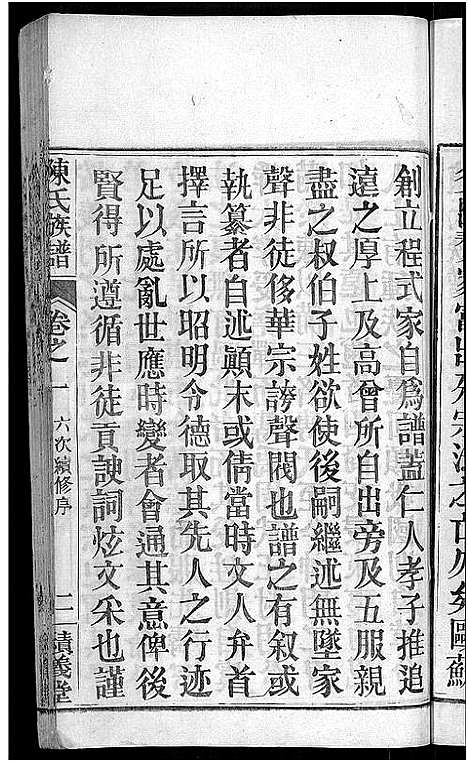 歐蘇
創立程式家自爲譜蓋仁人孝子推追
遠之厚上及高曾所自出旁及五服親
盡之叔伯子姓欲使後嗣繼述無墜家
聲非徒侈華宗誇聲閥也譜之有叙或
執纂者自述顚末或倩當時文人弁首
擇言所以昭明令德取其先人之行迹
足以處亂世應時變者會通其意俾後
賢得所遵循非徒貢諛詞炫文采也謹
陳氏族譜 卷之一 六次續修序 二 績義堂